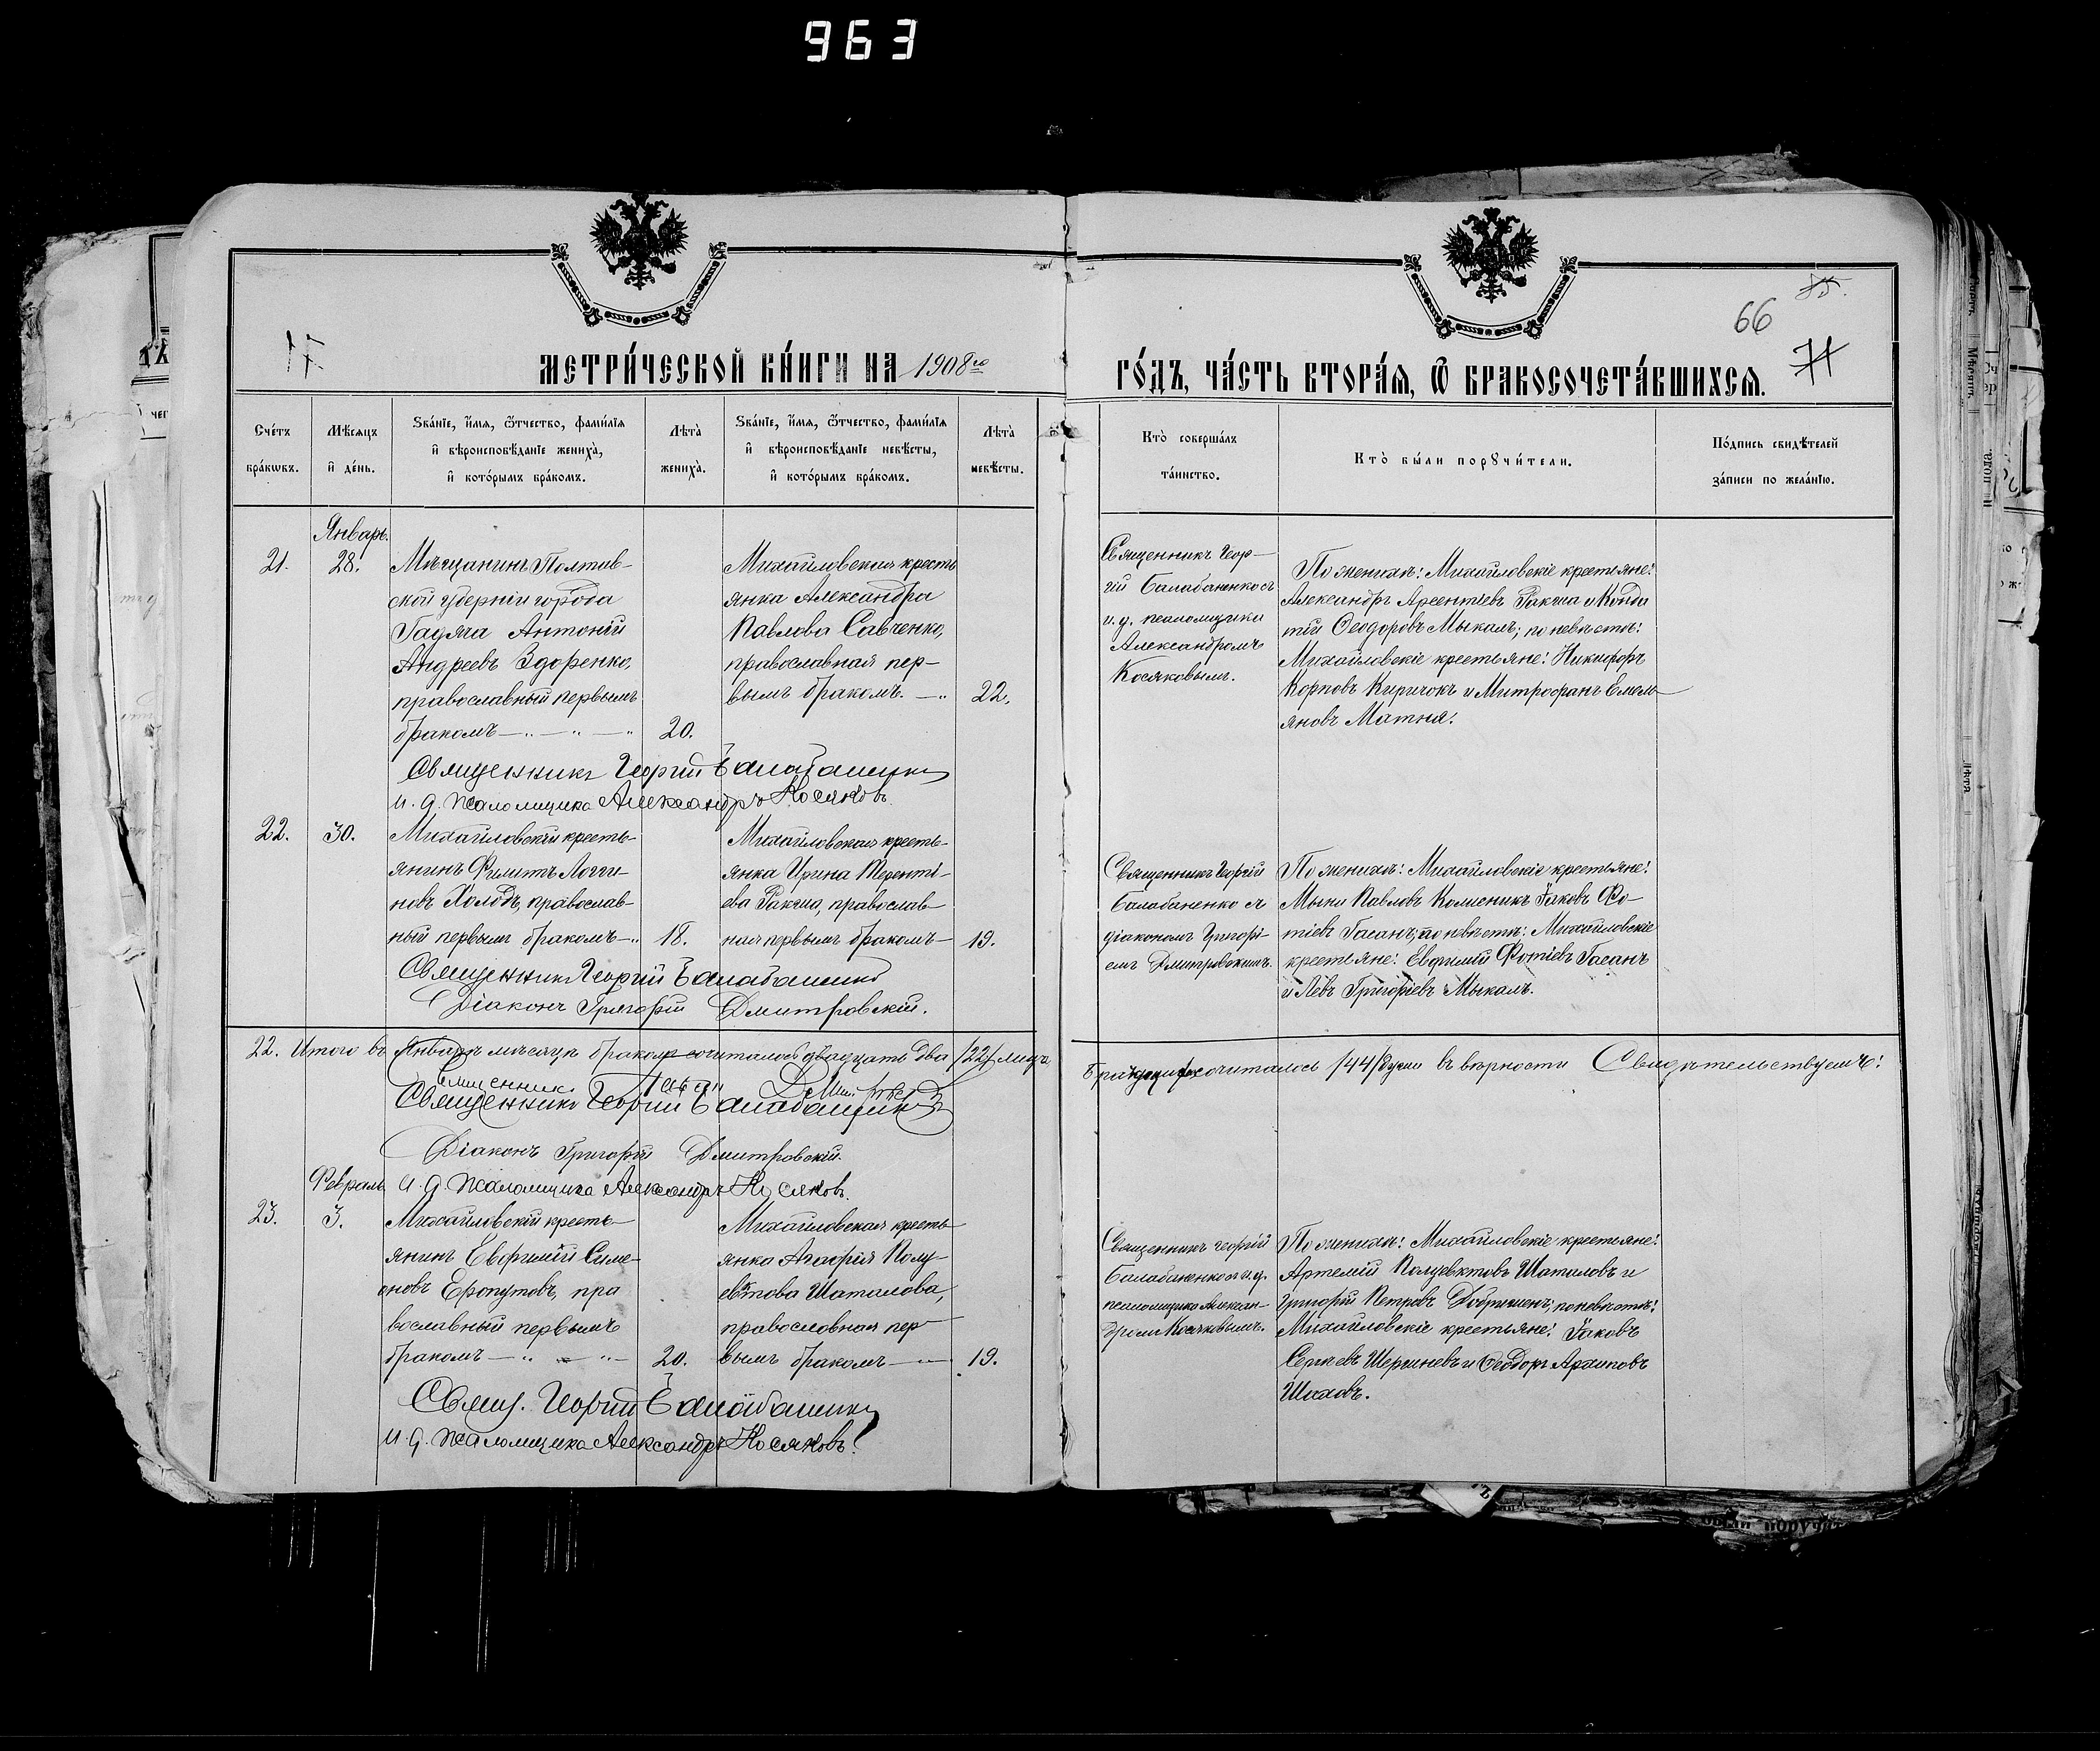 963
17.
85.
66
71
МЕТРИ́ЧЕСКОЙ КНИ́ГИ НА 1908го
ГО́ДЪ, ЧА́СТЬ ВТОРА́Я, Ѿ БРАКОСОЧЕТА́ВШИХСЯ.
Сче́тъ бра́кѡвъ.
Мѣ́сяцъ и҆ де́нь.
Ѕва́нїе, и҆́мя, ѻ҆́тчество, фами́лїя
и҆ вѣроисповѣ́данїе жениха̀,
и҆ кото́рымъ бра́комъ.
Лѣта̀ жениха̀.
Ѕва́нїе, и҆́мя, ѻ҆́тчество, фами́лїя
и҆ вѣроисповѣ́данїе невѣ́сты,
и҆ кото́рымъ бра́комъ.
Лѣта̀ невѣ́сты.
Кто̀ соверша́лъ
та́инство.
Кто̀ бы́ли порꙋчи́тели.
По́дпись свидѣ́телей
за́писи по жела́нїю.
Январь.
21.
28.
Мѣщанинъ Полтав-
ской губерніи города
Гадяча Антоній
Андреевъ Здоренко,
православный первымъ
бракомъ — „ — „ — „
20.
Михайловская кресть
янка Александра
Павлова Савченко,
православная пер-
вымъ бракомъ. — „
22.
Священникъ Геор-
гій Балабаненко съ
и. д. псаломщика
Александромъ
Косяковымъ.
По женихѣ: Михайловскіе крестьяне:
Александръ Арсентіевъ Ракша и Конда
тій Ѳеодоровъ Мыкалъ; по невѣстѣ:
Михайловскіе крестьяне: Никифоръ
Корповъ Киричокъ и Митрофанъ Емель
яновъ Матня.
Священникъ Георгій Балабаненко
и. д. псаломщика Александръ Косяковъ.
22.
30.
Михайловскій кресть-
янинъ Филиппъ Логги-
новъ Холодъ, православ-
ный первымъ бракомъ — „
18.
Михайловская кресть-
янка Ирина Теренті-
ева Ракша, православ-
ная первымъ бракомъ —
19.
Священникъ Георгій
Балабаненко съ
діакономъ Григорі-
емъ Дмитровскимъ.
По женихѣ: Михайловскіе крестьяне:
Мына Павловъ Коленикъ Іаковъ Фо-
тіевъ Гасанъ; по невѣстѣ: Михайловскіе
крестьяне: Евфимій Фотіевъ Гасанъ
и Левъ Григоріевъ Мыкалъ.
Священникъ Георгій Балабаненко
Діаконъ Григорій Дмитровскій.
22. Итого въ Январѣ мѣсяцѣ браковъ сочиталось двадцать два /22/ лицъ
сочиталось /44/ души въ вѣрности Свидѣтельствуемъ:
Священникъ
Священникъ Георгій Балабаненко
Діаконъ Григорій Дмитровскій.
и. д. псаломщика Александръ Косяковъ.
Февраль
23.
3.
Михайловскій кресть-
янинъ Евфимій Симе-
оновъ Ефопутовъ, пра
вославный первымъ
бракомъ — „ — „ —
20.
Михайловская кресть
янка Агафія Полу-
евктова Шаталова,
православная пер
вымъ бракомъ — „ —
19.
Священникъ Георгій
Балабаненко съ и. д.
псаломщика Алексан-
дромъ Косяковымъ.
По женихѣ: Михайловскіе крестьяне:
Артемій Полуевктовъ Шаталовъ и
Григорій Петровъ Добрышенъ; по невѣстѣ:
Михайловскіе крестьяне: Іаковъ
Сергѣевъ Шершневъ и Ѳеодоръ Архиповъ
Шаховъ.
Свящ. Георгій Балабаненко
и. д. псаломщика Александръ Косяковъ.